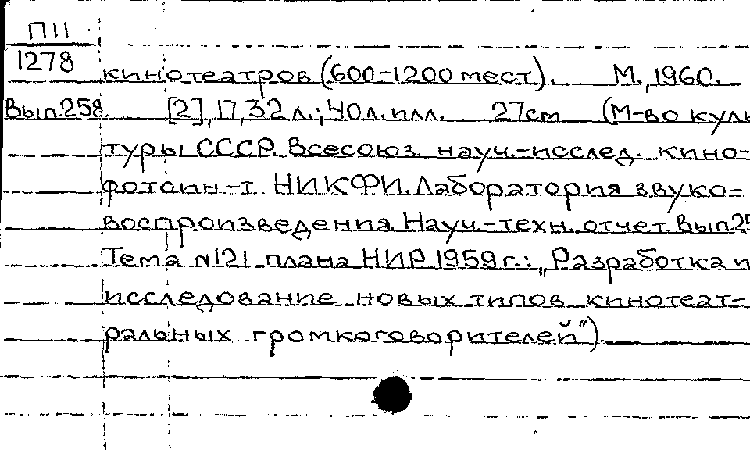 П11
1278
кинотеатров (600-1200 мест). М., 1960.
Вып.258 [2], 17, 32 л.; 40 л. илл. 27см (М-во куль
туры СССР. Всесоюз. науч.-исслед. кино-
фотоин-т. НИКФИ. Лаборатория звуко-
воспроизведения. Науч.-техн. отчет. Вып.25
Тема №121 плана НИР 1959г.: „Разработка и
исследование новых типов кинотеат-
ральных громкоговорителей")